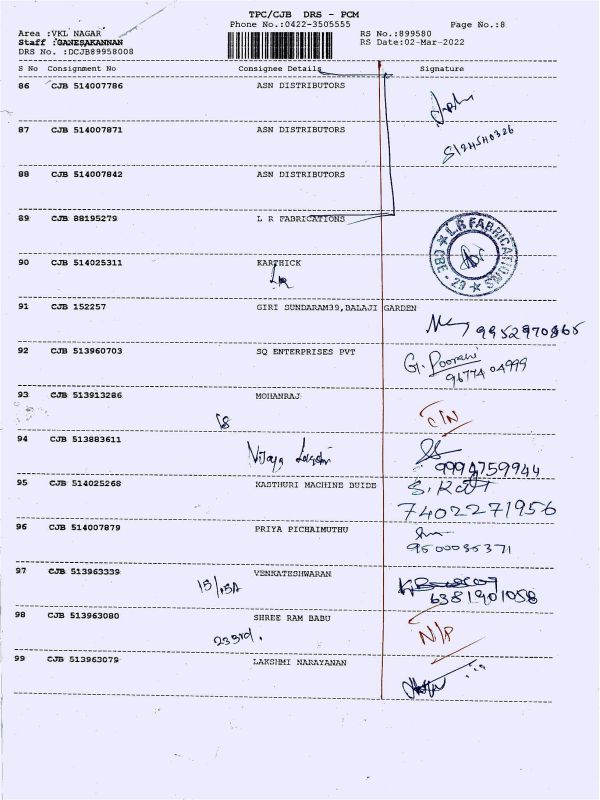 TPC/CJB DRS - PCM
Phone No.:0422-3505555 Page No.:8
Area :VKL NAGAR RS No.:899580
Staff :GANESAKANNAN RS Date:02-Mar-2022
DRS No. :DCJB89958008
S No Consignment No Consignee Details Signature
86 CJB 514007786 ASN DISTRIBUTORS
87 CJB 514007871 ASN DISTRIBUTORS
88 CJB 514007842 ASN DISTRIBUTORS
89 CJB 88195279 L R FABRICATIONS
★ L R FABRICATIONS ★ CBE - 29
90 CJB 514025311 KARTHICK
91 CJB 152257 GIRI SUNDARAM39,BALAJI GARDEN
9952970865
92 CJB 513960703 SQ ENTERPRISES PVT
G. Poorani
9677404999
93 CJB 513913286 MOHANRAJ
94 CJB 513883611
Vijaya
9994759944
95 CJB 514025268 KASTHURI MACHINE BUIDE
7402271956
96 CJB 514007879 PRIYA PICHAIMUTHU
9500085371
97 CJB 513963339 VENKATESHWARAN
6381901058
98 CJB 513963080 SHREE RAM BABU
233rd. N/A
99 CJB 513963079 LAKSHMI NARAYANAN